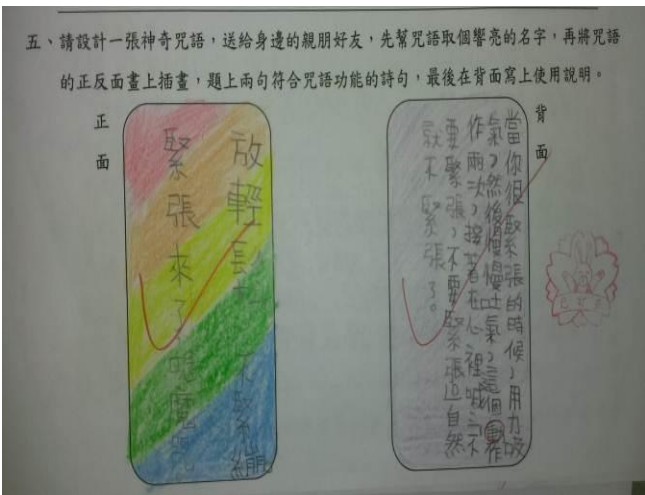 五、請設計一張神奇咒語，送給身邊的親朋好友，先幫咒語取個響亮的名字，再將咒語
的正反面畫上插畫，題上兩句符合咒語功能的詩句，最後在背面寫上使用說明。
正面
放輕鬆 不緊繃
緊張來了唸魔咒
背面
當你很緊張的時候，用力吸
氣，然後慢慢吐氣，這個動作
作兩次，接著在心裡喊：不
要緊張，不要緊張，自然
就不緊張了。